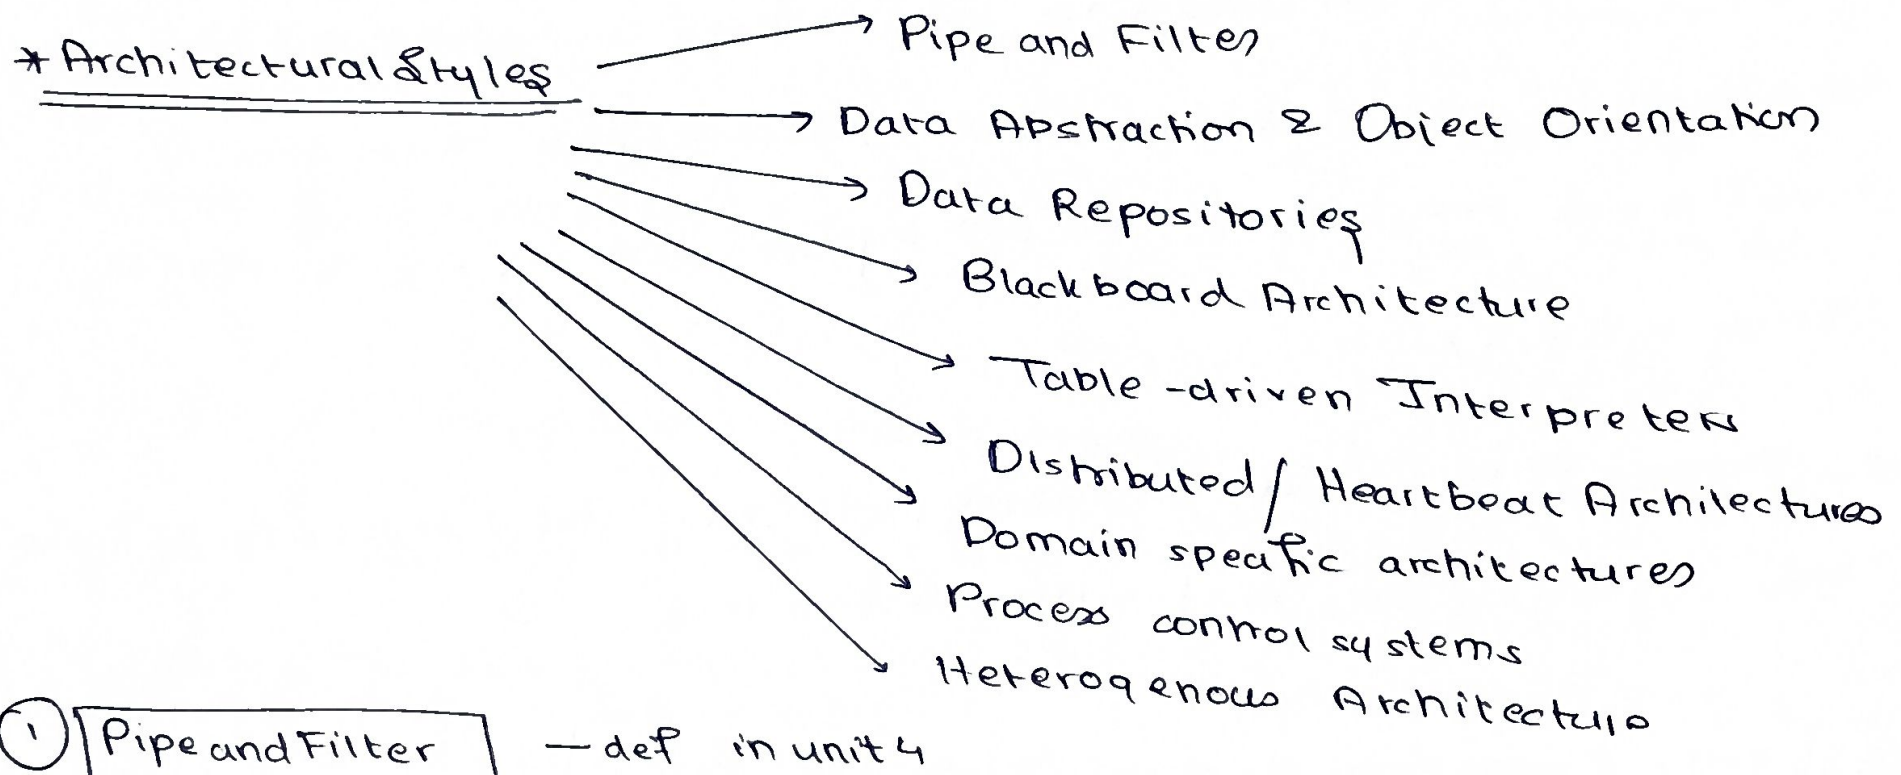 * Architectural Styles
Pipe and Filter
Data Abstraction & Object Orientation
Data Repositories
Blackboard Architecture
Table-driven Interpreters
Distributed / Heartbeat Architectures
Domain specific architectures
Process control systems
Heterogenous Architecture
1 Pipe and Filter — def in unit 4